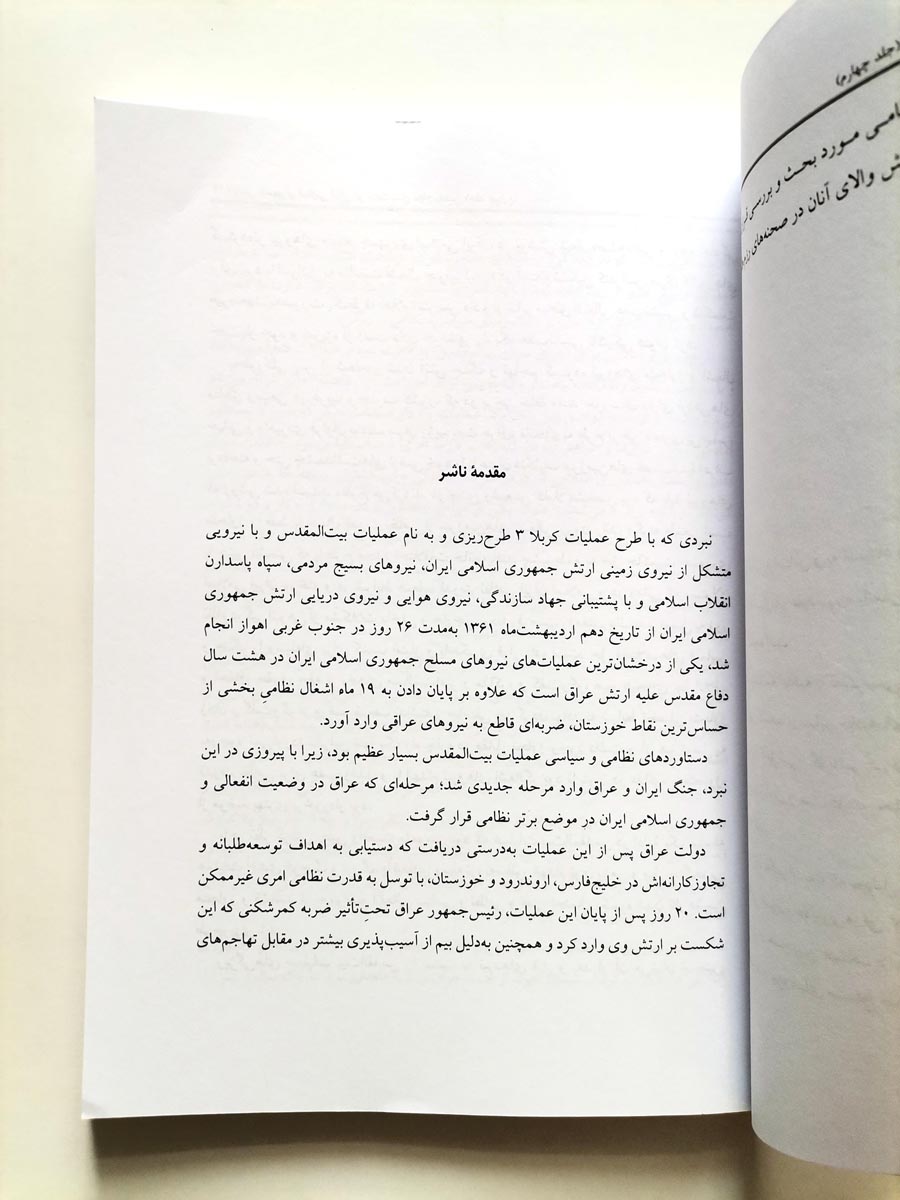 (جلد چهارم)
مورد بحث و بررسی
والای آنان در صحنه‌های
مقدمهٔ ناشر
نبردی که با طرح عملیات کربلا ۳ طرح‌ریزی و به نام عملیات بیت‌المقدس و با نیرویی
متشکل از نیروی زمینی ارتش جمهوری اسلامی ایران، نیروهای بسیج مردمی، سپاه پاسدارن
انقلاب اسلامی و با پشتیبانی جهاد سازندگی، نیروی هوایی و نیروی دریایی ارتش جمهوری
اسلامی ایران از تاریخ دهم اردیبهشت‌ماه ۱۳۶۱ به‌مدت ۲۶ روز در جنوب غربی اهواز انجام
شد، یکی از درخشان‌ترین عملیات‌های نیروهای مسلح جمهوری اسلامی ایران در هشت سال
دفاع مقدس علیه ارتش عراق است که علاوه بر پایان دادن به ۱۹ ماه اشغال نظامیِ بخشی از
حساس‌ترین نقاط خوزستان، ضربه‌ای قاطع به نیروهای عراقی وارد آورد.
دستاوردهای نظامی و سیاسی عملیات بیت‌المقدس بسیار عظیم بود، زیرا با پیروزی در این
نبرد، جنگ ایران و عراق وارد مرحله جدیدی شد؛ مرحله‌ای که عراق در وضعیت انفعالی و
جمهوری اسلامی ایران در موضع برتر نظامی قرار گرفت.
دولت عراق پس از این عملیات به‌درستی دریافت که دستیابی به اهداف توسعه‌طلبانه و
تجاوزکارانه‌اش در خلیج‌فارس، اروندرود و خوزستان، با توسل به قدرت نظامی امری غیرممکن
است. ۲۰ روز پس از پایان این عملیات، رئیس‌جمهور عراق تحتِ‌تأثیر ضربه کمرشکنی که این
شکست بر ارتش وی وارد کرد و همچنین به‌دلیل بیم از آسیب‌پذیری بیشتر در مقابل تهاجم‌های